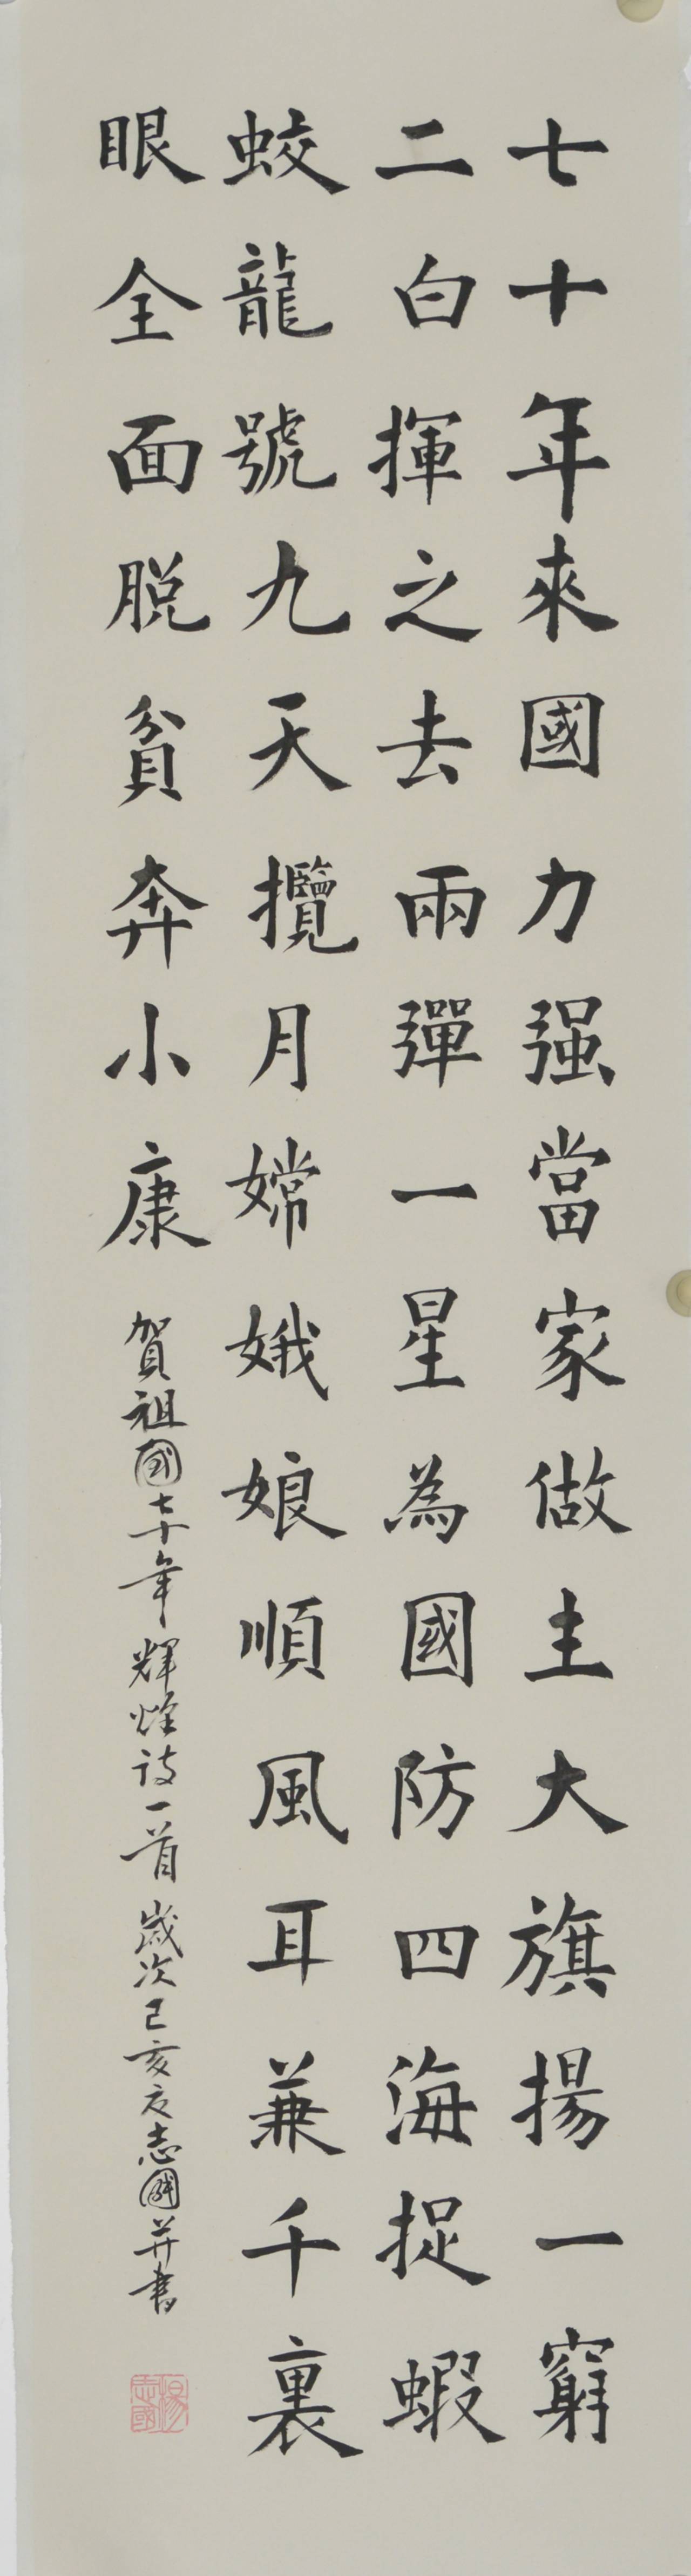 七十年來國力强當家做主大旗揚一窮
二白揮之去兩彈一星為國防四海捉蝦
蛟龍號九天攬月嫦娥娘順風耳兼千裏
眼全面脱貧奔小康
賀祖國七十年輝煌詩一首歲次己亥友志國并書
楊志國